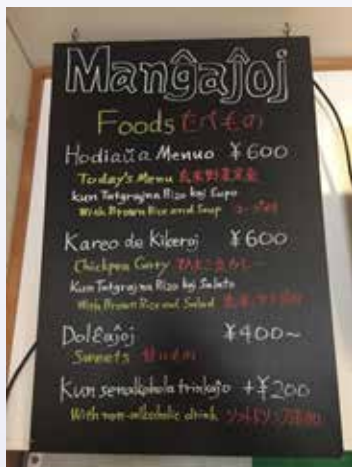 Manĝaĵoj
Foods たべもの
Hodiaŭa Menuo ¥600
Today's Menu 玄米野菜定食
Kun Tutgrajna Rizo kaj Supo
With Brown Rice and Soup スープ付
Kareo de Kikeroj ¥600
Chickpea Cury ひよこ豆カレー
Kun Tutgrajna Rizo kaj Salato
With Brown Rice and Salad 玄米・サラダ付
Dolĉaĵoj ¥400~
Sweets 甘いもの
Kun senalkohola trinkaĵo +¥200
With non-alkoholic drink